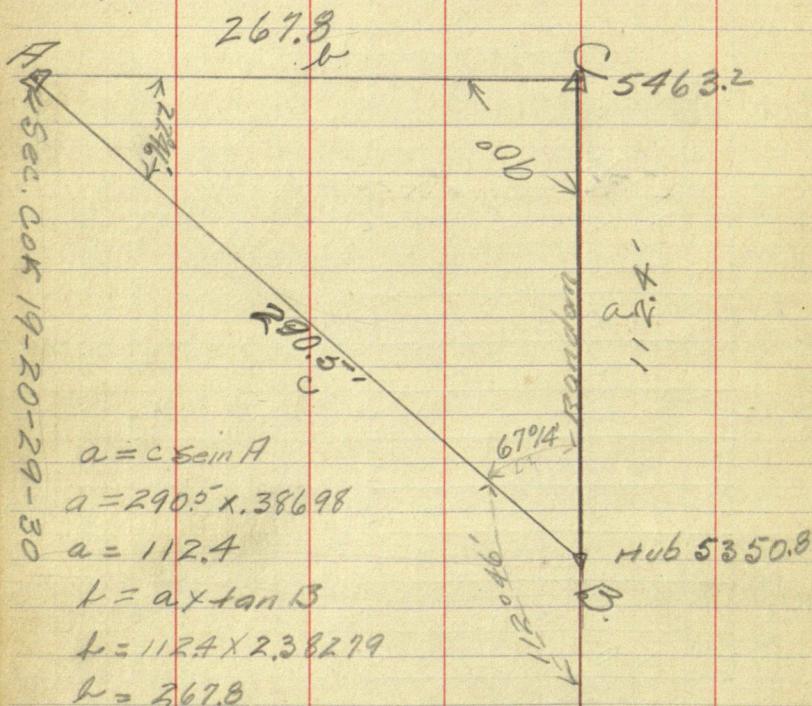 267.8
b
A
C
5463.2
22°46'
90°
Sec. Cor 19-20-29-30
Random
a
112.4'
290.5'
c
67°14'
a = c sein A
a = 290.5 x .38698
a = 112.4
b = a x tan B
b = 112.4 x 2.38279
b = 267.8
Hub 5350.8
B.
112°46'